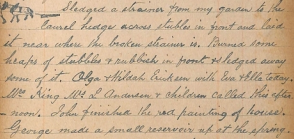 Sledged a strainer from my garden to the
laurel hedge across stables in front and laid
it near where the broken strainer is. Burned some
heaps of stubbles & rubbish in front & sledged away
some of it. Olga & Hildah Eriksen with Eva & Ella today.
Mrs King, Mrs L Andersen & children called this after
noon. John finished the red painting of house.
George made a small reservoir up at the spring